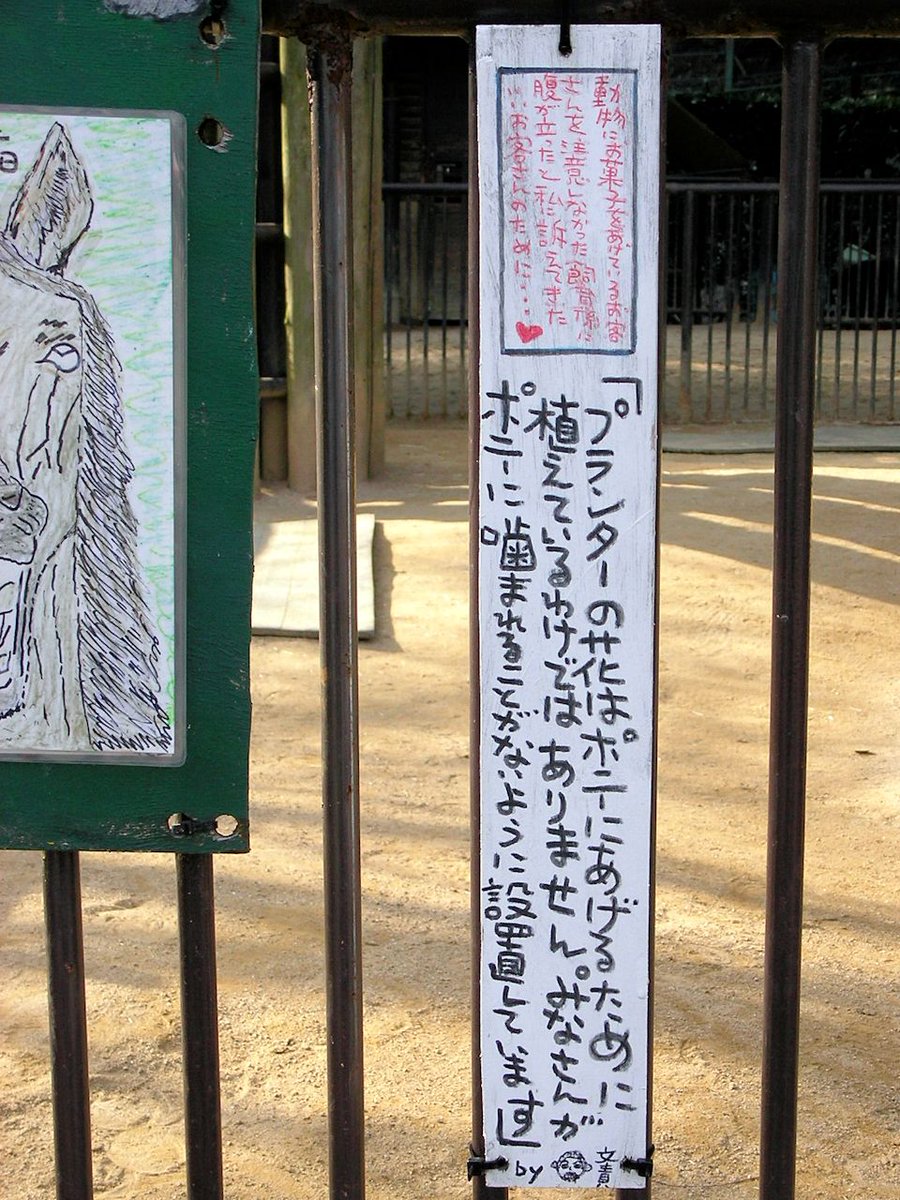 動物にお菓子をあげているお客
さんを注意しなかった飼育係に
腹が立ったと私に訴えてきた
…お客さんのために…
「プランターの花はポニーにあげるために
植えているわけではありません。みなさんが
ポニーに噛まれることがないように設置しています」
by 文責